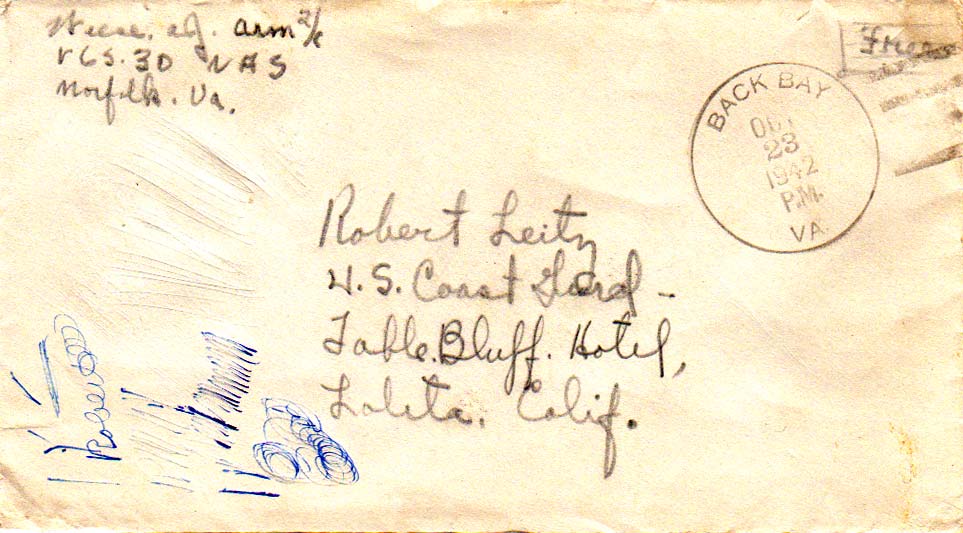 Weese, a.J. arm 2/c
VGS.30 NAS
Norfolk. Va.
Free
BACK BAY
OCT
23
1942
P.M.
VA
Robert Leitz
U.S. Coast Gard -
Table.Bluff. Hotel,
Loleta. Calif.
Robert